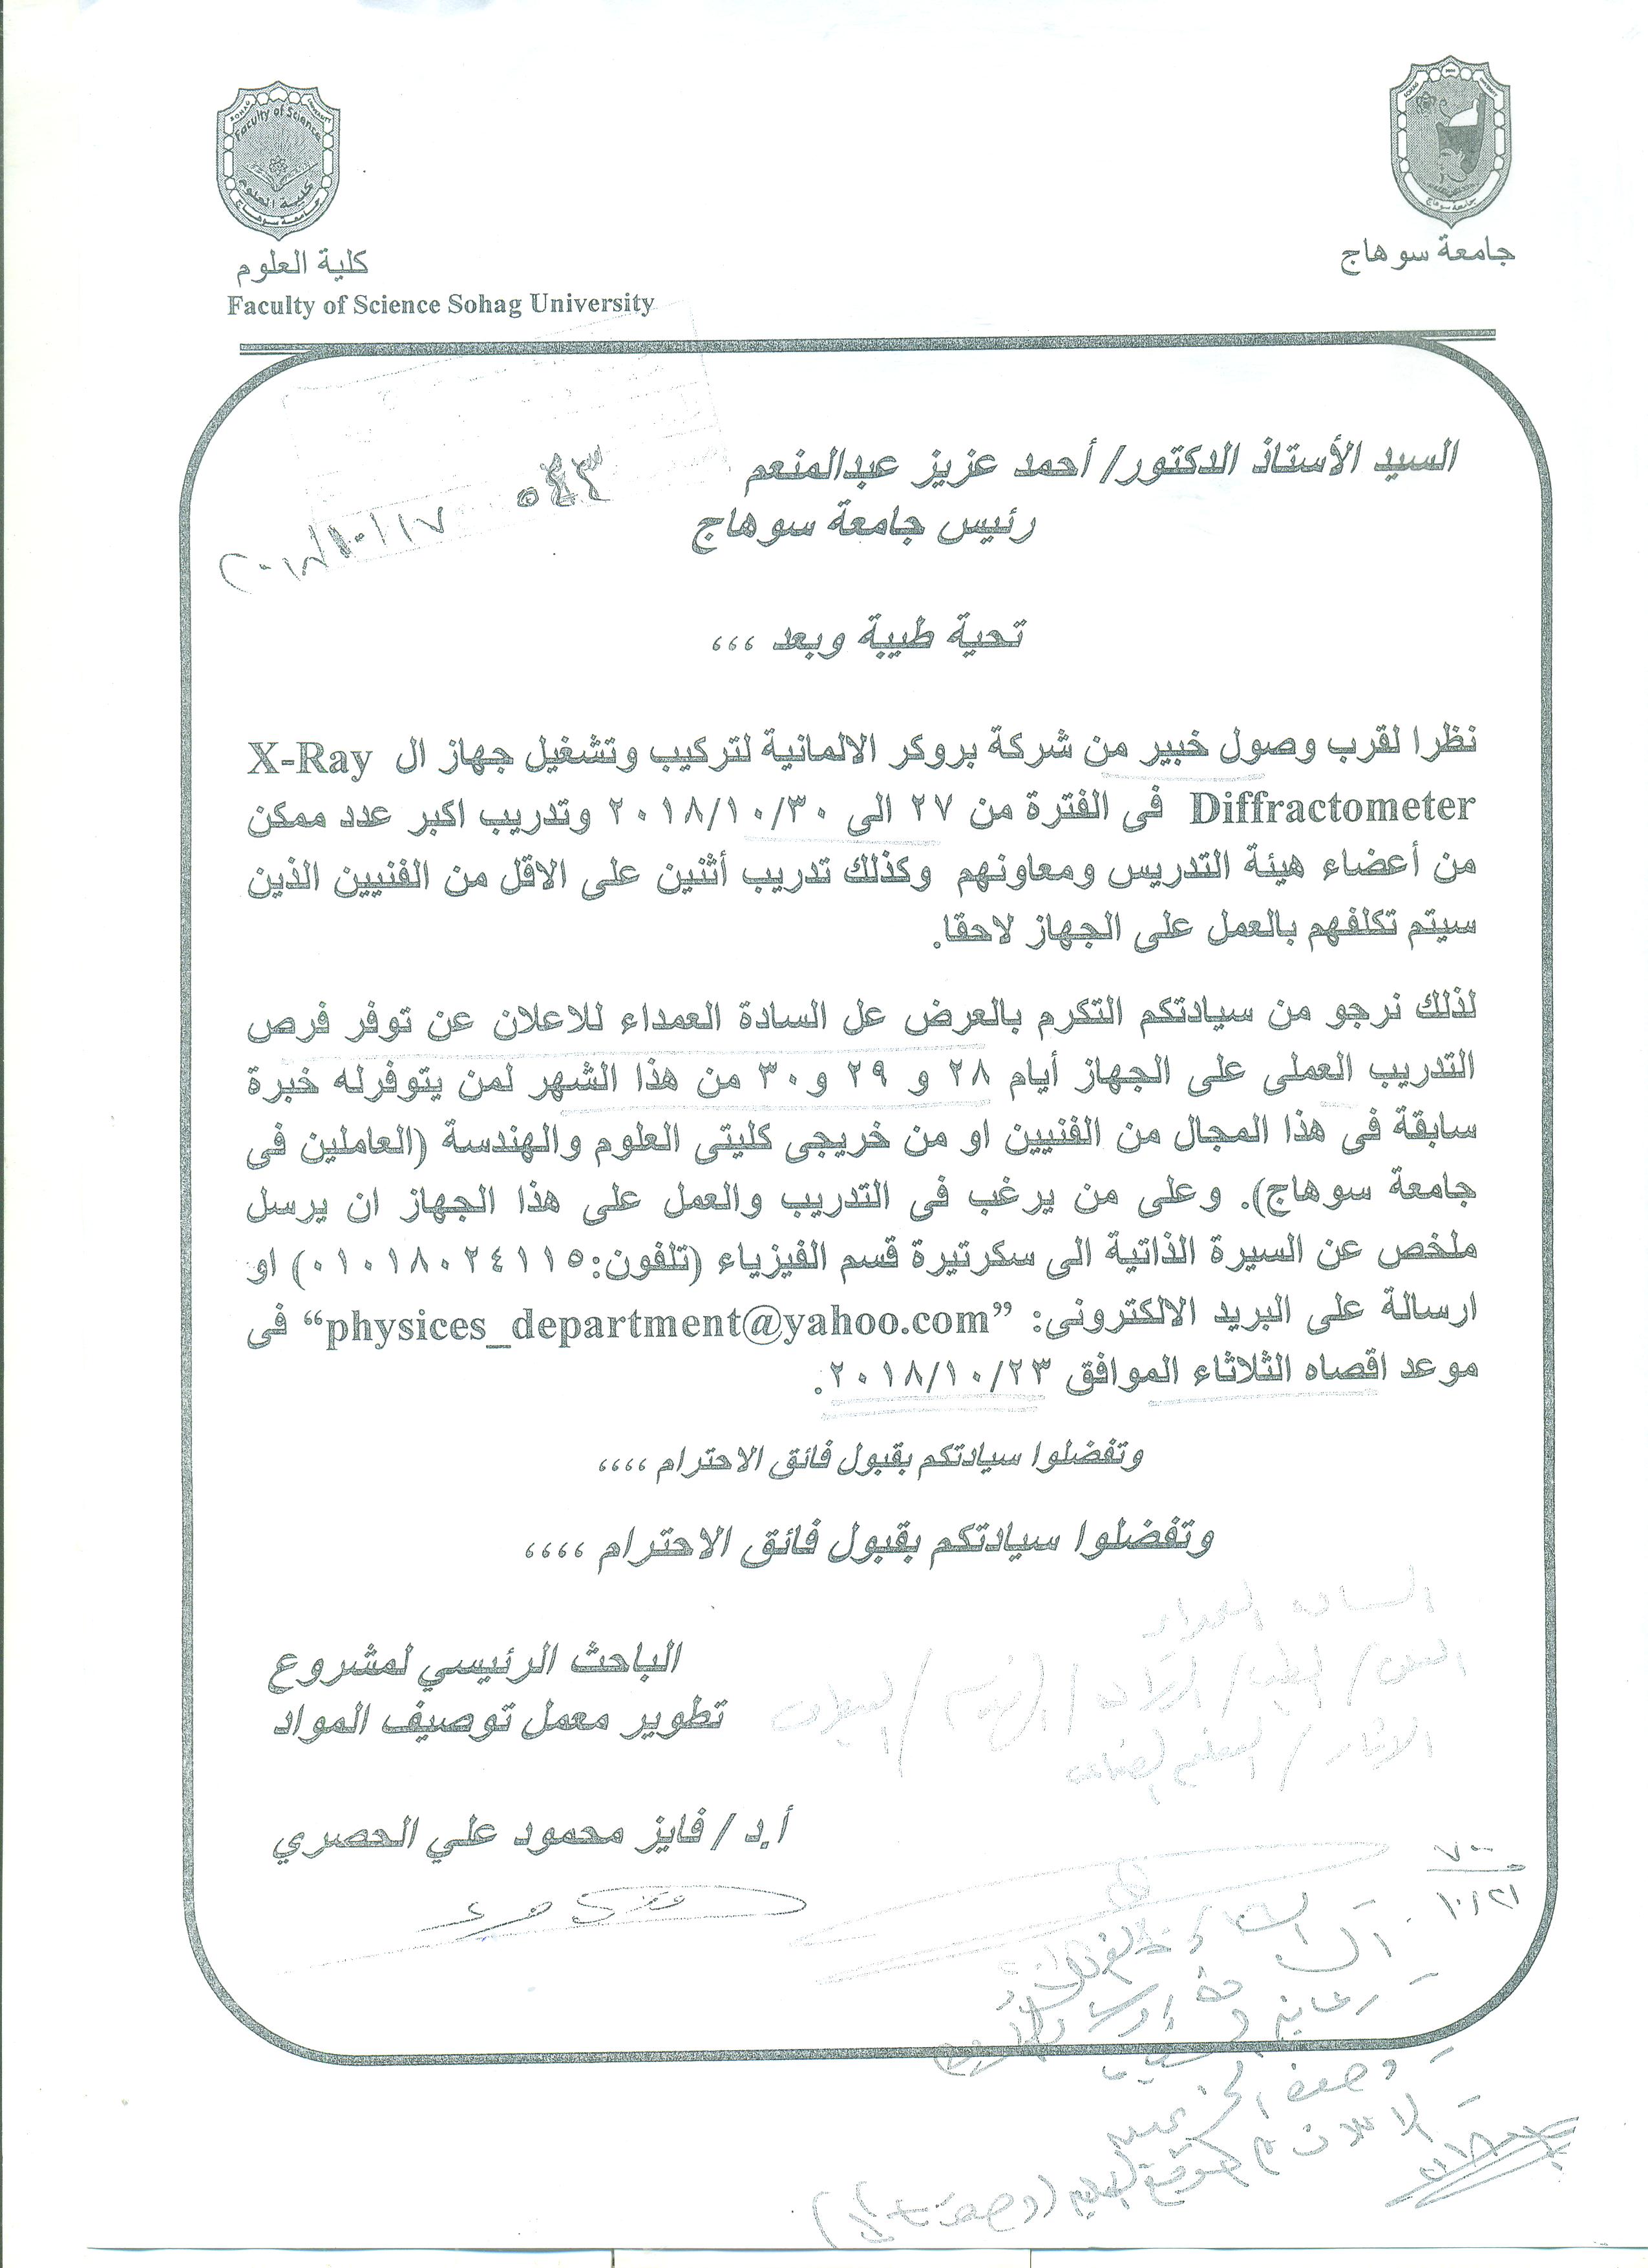 جامعة سوهاج
كلية العلوم
Faculty of Science Sohag University
السيد الأستاذ الدكتور/ أحمد عزيز عبدالمنعم
رئيس جامعة سوهاج
٥٤٣
٢٠١٨/١٠/١٧
تحية طيبة وبعد ،،،
نظرا لقرب وصول خبير من شركة بروكر الالمانية لتركيب وتشغيل جهاز ال X-Ray
Diffractometer فى الفترة من ٢٧ الى ٢٠١٨/١٠/٣٠ وتدريب اكبر عدد ممكن
من أعضاء هيئة التدريس ومعاونهم وكذلك تدريب أثنين على الاقل من الفنيين الذين
سيتم تكلفهم بالعمل على الجهاز لاحقا.
لذلك نرجو من سيادتكم التكرم بالعرض عل السادة العمداء للاعلان عن توفر فرص
التدريب العملى على الجهاز أيام ٢٨ و ٢٩ و٣٠ من هذا الشهر لمن يتوفرله خبرة
سابقة فى هذا المجال من الفنيين او من خريجى كليتى العلوم والهندسة (العاملين فى
جامعة سوهاج). وعلى من يرغب فى التدريب والعمل على هذا الجهاز ان يرسل
ملخص عن السيرة الذاتية الى سكرتيرة قسم الفيزياء (تلفون:٠١٠١٨٠٢٤١١٥) او
ارسالة على البريد الالكترونى: "physices_department@yahoo.com" فى
موعد اقصاه الثلاثاء الموافق ٢٠١٨/١٠/٢٣.
وتفضلوا سيادتكم بقبول فائق الاحترام ،،،،
وتفضلوا سيادتكم بقبول فائق الاحترام ،،،،
الباحث الرئيسي لمشروع
تطوير معمل توصيف المواد
أ.د / فايز محمود علي الحصري
السادة العمداء
١٠/٢١